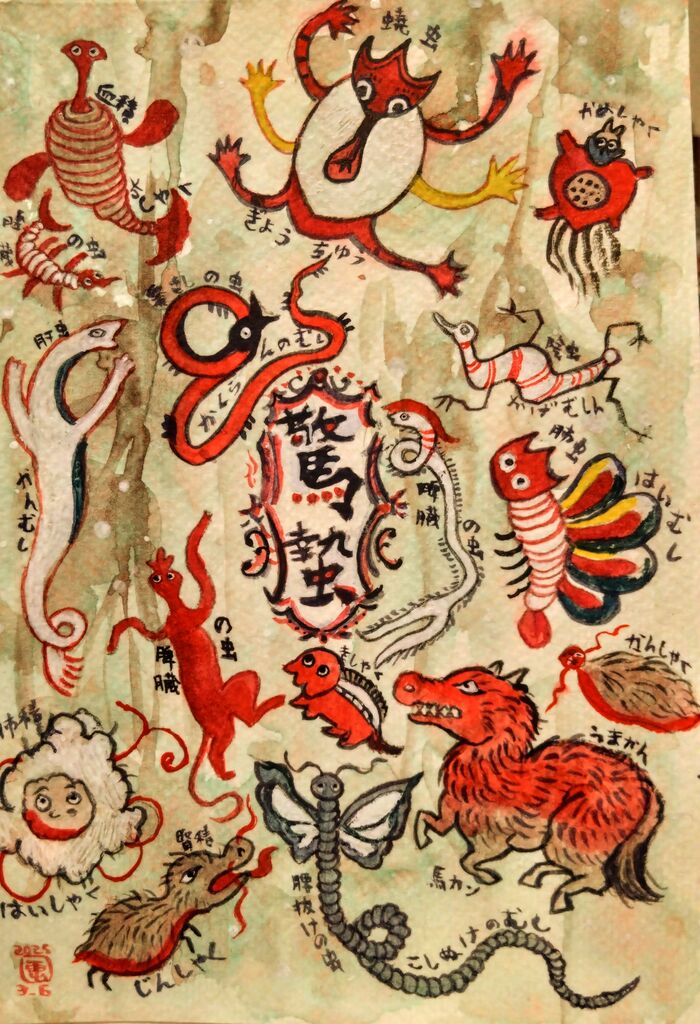 蟯虫
血積
かめしゃく
ちしゃく
ぎょう
ちゅう
の虫
むしの虫
肝虫
かんむし
かくらんのむし
かげむし
肺虫
はいむし
驚
蟄
脾臓
の虫
の虫
脾臓
きしゃく
かんしゃく
うまかん
馬カン
肺積
はいしゃく
腎積
じんしゃく
腰抜けの虫
こしぬけのむし
2025
3_6